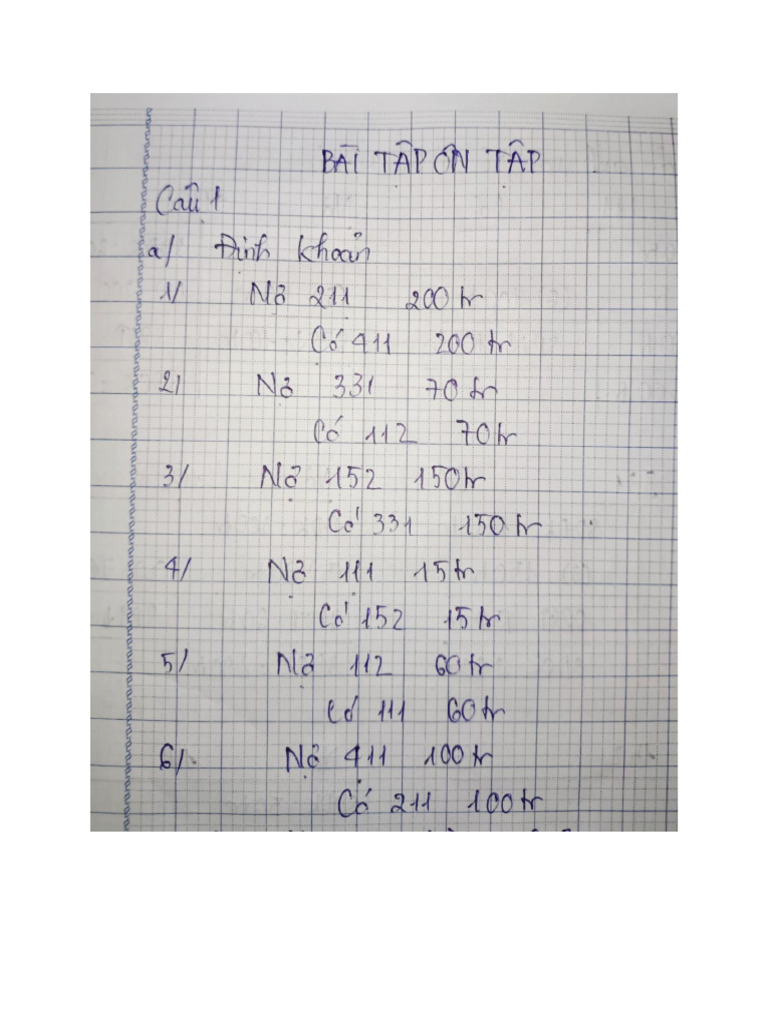 BÀI TẬP ÔN TẬP
Câu 1
a/ Định khoản
1/ Nợ 211 200 tr
Có 411 200 tr
2/ Nợ 331 70 tr
Có 112 70 tr
3/ Nợ 152 150 tr
Có 331 150 tr
4/ Nợ 111 15 tr
Có 152 15 tr
5/ Nợ 112 60 tr
Có 111 60 tr
6/ Nợ 411 100 tr
Có 211 100 tr